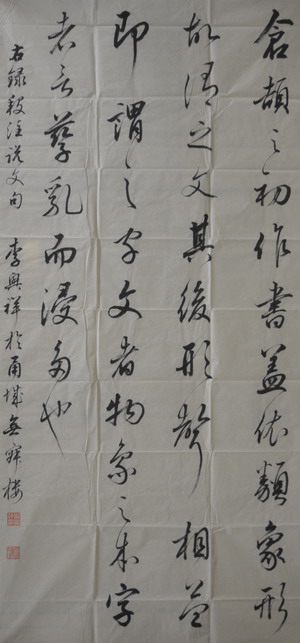 倉頡之初作書蓋依類象形
故謂之文其後形聲相益
即謂之字文者物象之本字
者言孳乳而浸多也
右錄段注說文句 李興祥於甬城無寐樓